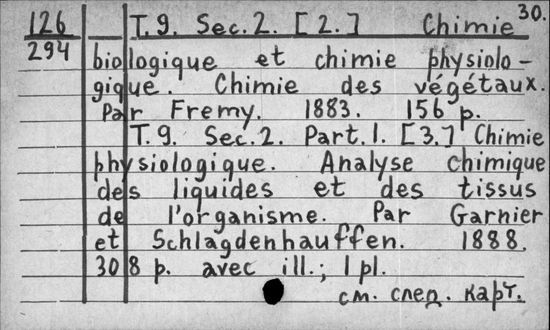 30.
126 T. 9. Sec. 2. [2.] Chimie
294 biologique et chimie physiolo-
gique. Chimie des végétaux.
Par Fremy. 1883. 156 p.
T. 9. Sec. 2. Part. 1. [3.] Chimie
physiologique. Analyse chimique
des liquides et des tissus
de l'organisme. Par Garnier
et Schlagdenhauffen. 1888.
308 p. avec ill.; 1 pl.
см. след. карт.